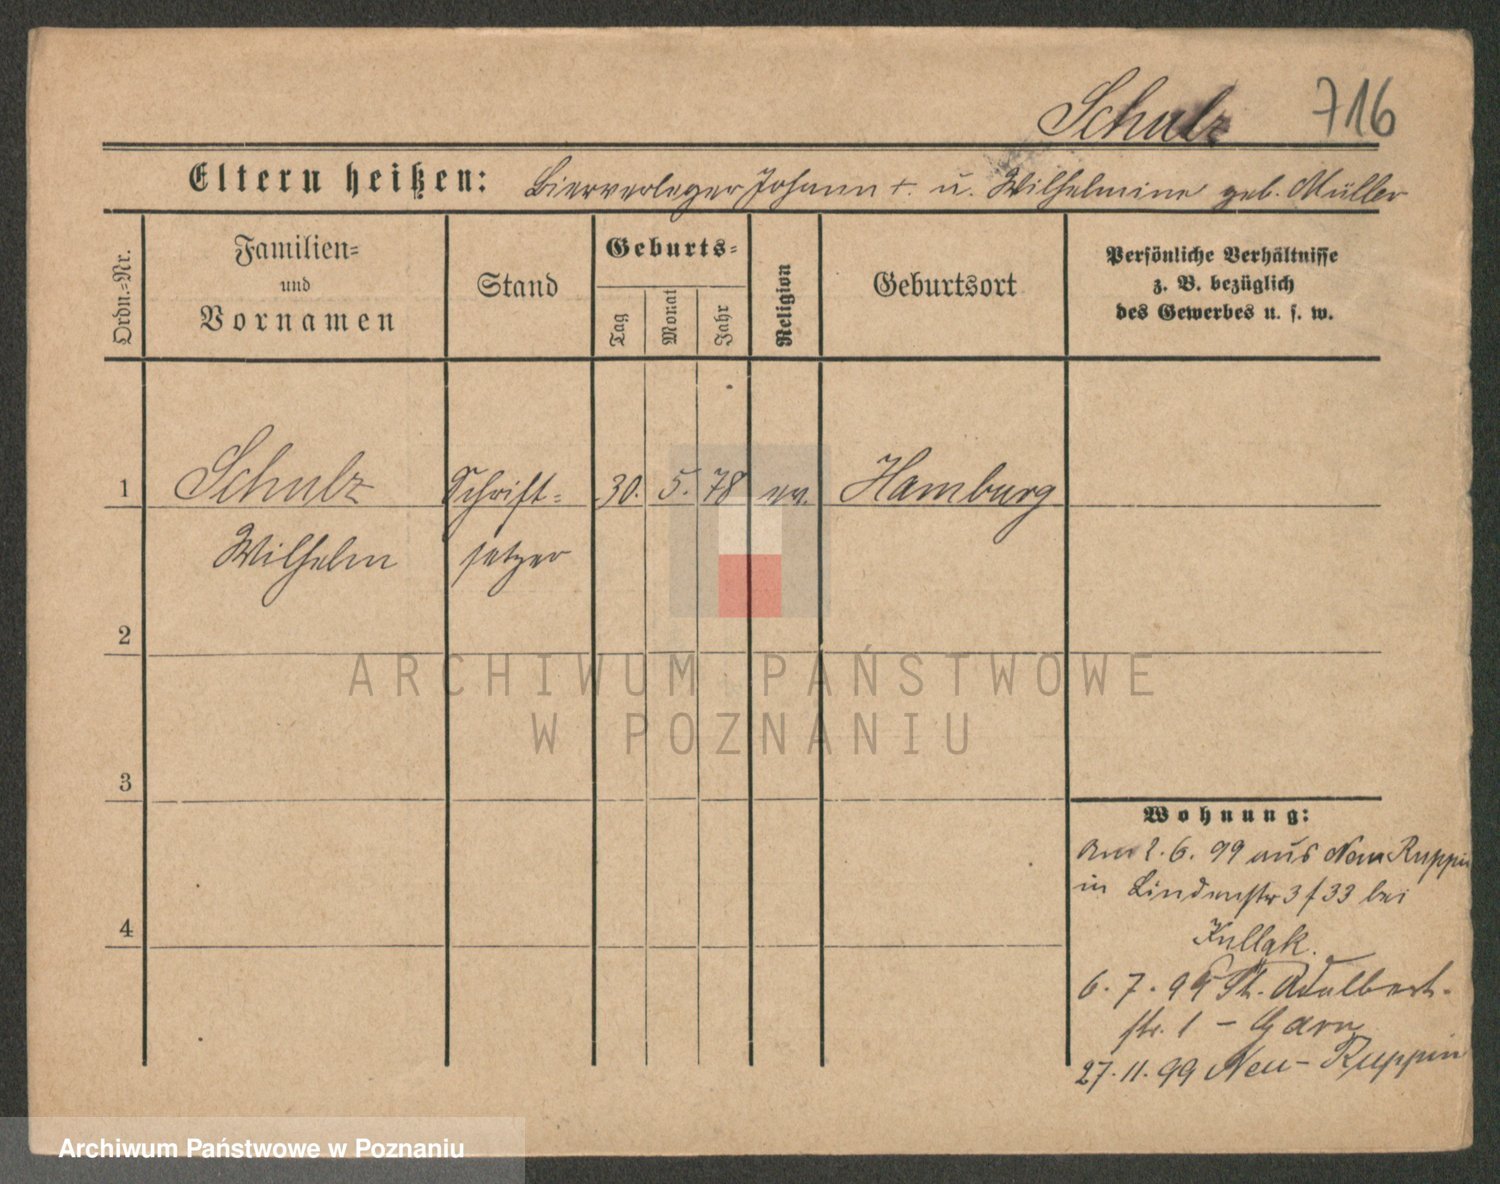 Schulz 716
Eltern heißen: Bierverleger Johann †. u. Wilhelmine geb. Müller
Ordn.-Nr.
Familien-
und
Vornamen
Stand
Geburts-
Tag
Monat
Jahr
Religion
Geburtsort
Persönliche Verhältnisse
z. B. bezüglich
des Gewerbes u. s. w.
1 Schulz Schrift- 30. 5. 78 ev. Hamburg
Wilhelm setzer
2
ARCHIWUM PAŃSTWOWE
W POZNANIU
3
Wohnung:
am 2. 6. 99 aus Neu Ruppin
in Lindenstr 3 / 33 bei
Kullak.
4
6. 7. 99 St. Adalbert-
str. 1 -
27. 11. 99 Neu-Ruppin
Archiwum Państwowe w Poznaniu